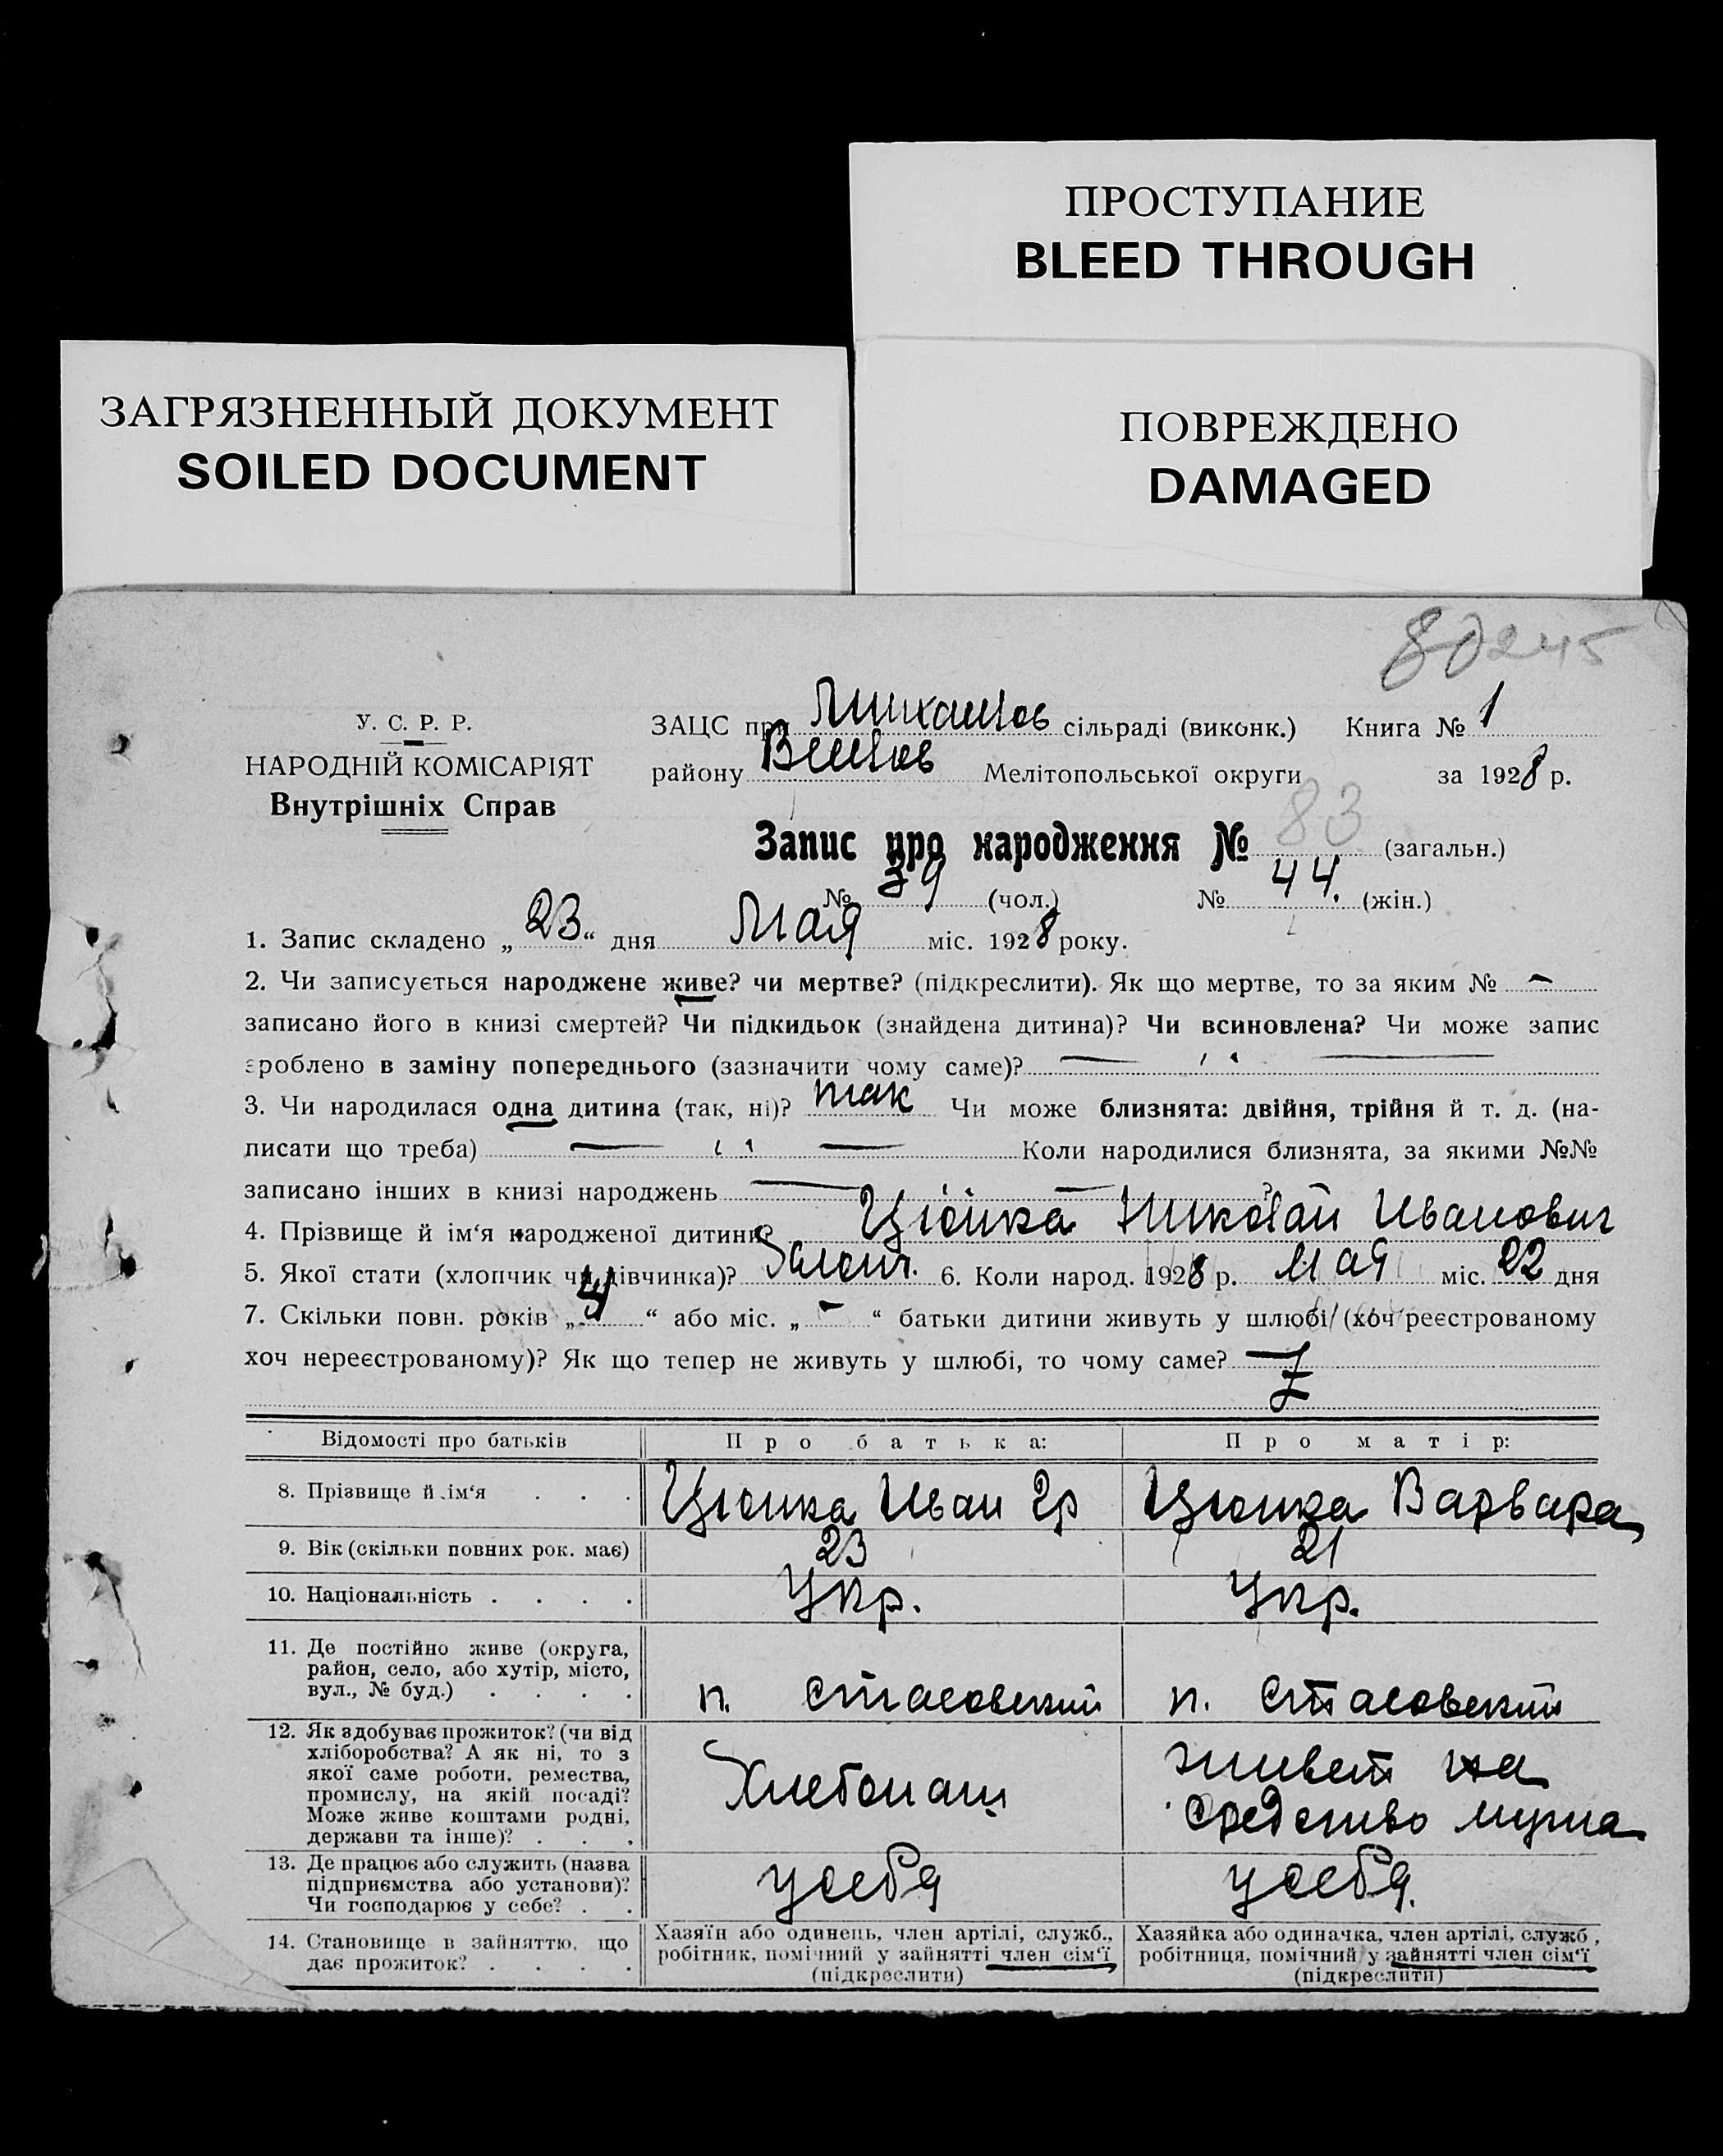 ПРОСТУПАНИЕ
BLEED THROUGH
ЗАГРЯЗНЕННЫЙ ДОКУМЕНТ
SOILED DOCUMENT
ПОВРЕЖДЕНО
DAMAGED
80245
У. С. Р. Р.
НАРОДНІЙ КОМІСАРІЯТ
Внутрішніх Справ
ЗАЦС при Михайлов сільраді (виконк.) Книга № 1
району Веселов Мелітопольської округи за 1928 р.
Запис про народження № 83 (загальн.)
№ 39 (чол.) № 44. (жін.)
1. Запис складено „23“ дня Мая міс. 1928 року.
2. Чи записується народжене живе? чи мертве? (підкреслити). Як що мертве, то за яким № —
записано його в книзі смертей? Чи підкидьок (знайдена дитина)? Чи всиновлена? Чи може запис
зроблено в заміну попереднього (зазначити чому саме)? — ״ —
3. Чи народилася одна дитина (так, ні)? так Чи може близнята: двійня, трійня й т. д. (на-
писати що треба) — ״ — Коли народилися близнята, за якими №№
записано інших в книзі народжень — ״ — ?
4. Прізвище й ім‘я народженої дитини? Цюпка Николай Иванович
5. Якої стати (хлопчик чи дівчинка)? 6. Коли народ. 1928 р. Мая міс. 22 дня
7. Скільки повн. років „4“ або міс. „—“ батьки дитини живуть у шлюбі (хоч реєстрованому
хоч нереєстрованому)? Як що тепер не живуть у шлюбі, то чому саме? —
Відомості про батьків Про батька: Про матір:
8. Прізвище й ім‘я . . . Цюпка Иван Гр Цюпка Варвара
9. Вік (скільки повних рок. має) 23 21
10. Національність . . . . Укр. Укр.
11. Де постійно живе (округа,
район, село, або хутір, місто,
вул., № буд.) . . . . п. Стасовский п. Стасовский
12. Як здобуває прожиток? (чи від
хліборобства? А як ні, то з
якої саме роботи, ремества,
промислу, на якій посаді?
Може живе коштами родні,
держави та інше)? . . . Хлебопаш живет на
средство мужа
13. Де працює або служить (назва
підприємства або установи)?
Чи господарює у себе? . . у себя у себя.
14. Становище в зайняттю, що
дає прожиток? . . . .
Хазяїн або одинець, член артілі, служб.,
робітник, помічний у зайнятті член сім‘ї
(підкреслити)
Хазяйка або одиначка, член артілі, служб.,
робітниця, помічний у зайнятті член сім‘ї
(підкреслити)